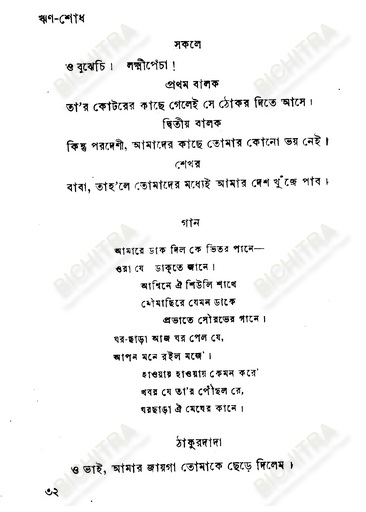 ঋণ-শোধ
সকলে
ও বুঝেচি। লক্ষ্মীপেঁচা!
প্রথম বালক
তা'র কোটরের কাছে গেলেই সে ঠোকর দিতে আসে।
দ্বিতীয় বালক
কিন্তু পরদেশী, আমাদের কাছে তোমার কোনো ভয় নেই।
শেখর
বাবা, তাহ'লে তোমাদের মধ্যেই আমার দেশ খুঁজে পাব।
গান
আমারে ডাক দিল কে ভিতর পানে—
ওরা যে ডাকতে জানে।
আশ্বিনে ঐ শিউলি শাখে
মৌমাছিরে যেমন ডাকে
প্রভাতে সৌরভের গানে।
ঘর-ছাড়া আজ ঘর পেল যে,
আপন মনে রইল মজে'।
হাওয়ায় হাওয়ায় কেমন করে'
খবর যে তা'র পৌঁছল রে,
ঘরছাড়া ঐ মেঘের কানে।
ঠাকুরদাদা
ও ভাই, আমার জায়গা তোমাকে ছেড়ে দিলেম।
৩২
BICHITRA
BICHITRA
BICHITRA
BICHITRA
BICHITRA
BICHITRA